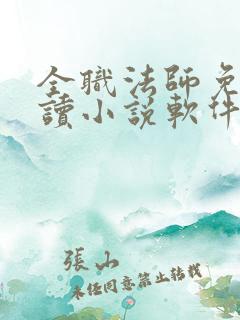 全職法師免
讀小説軟件
張山
未任同意禁止转载